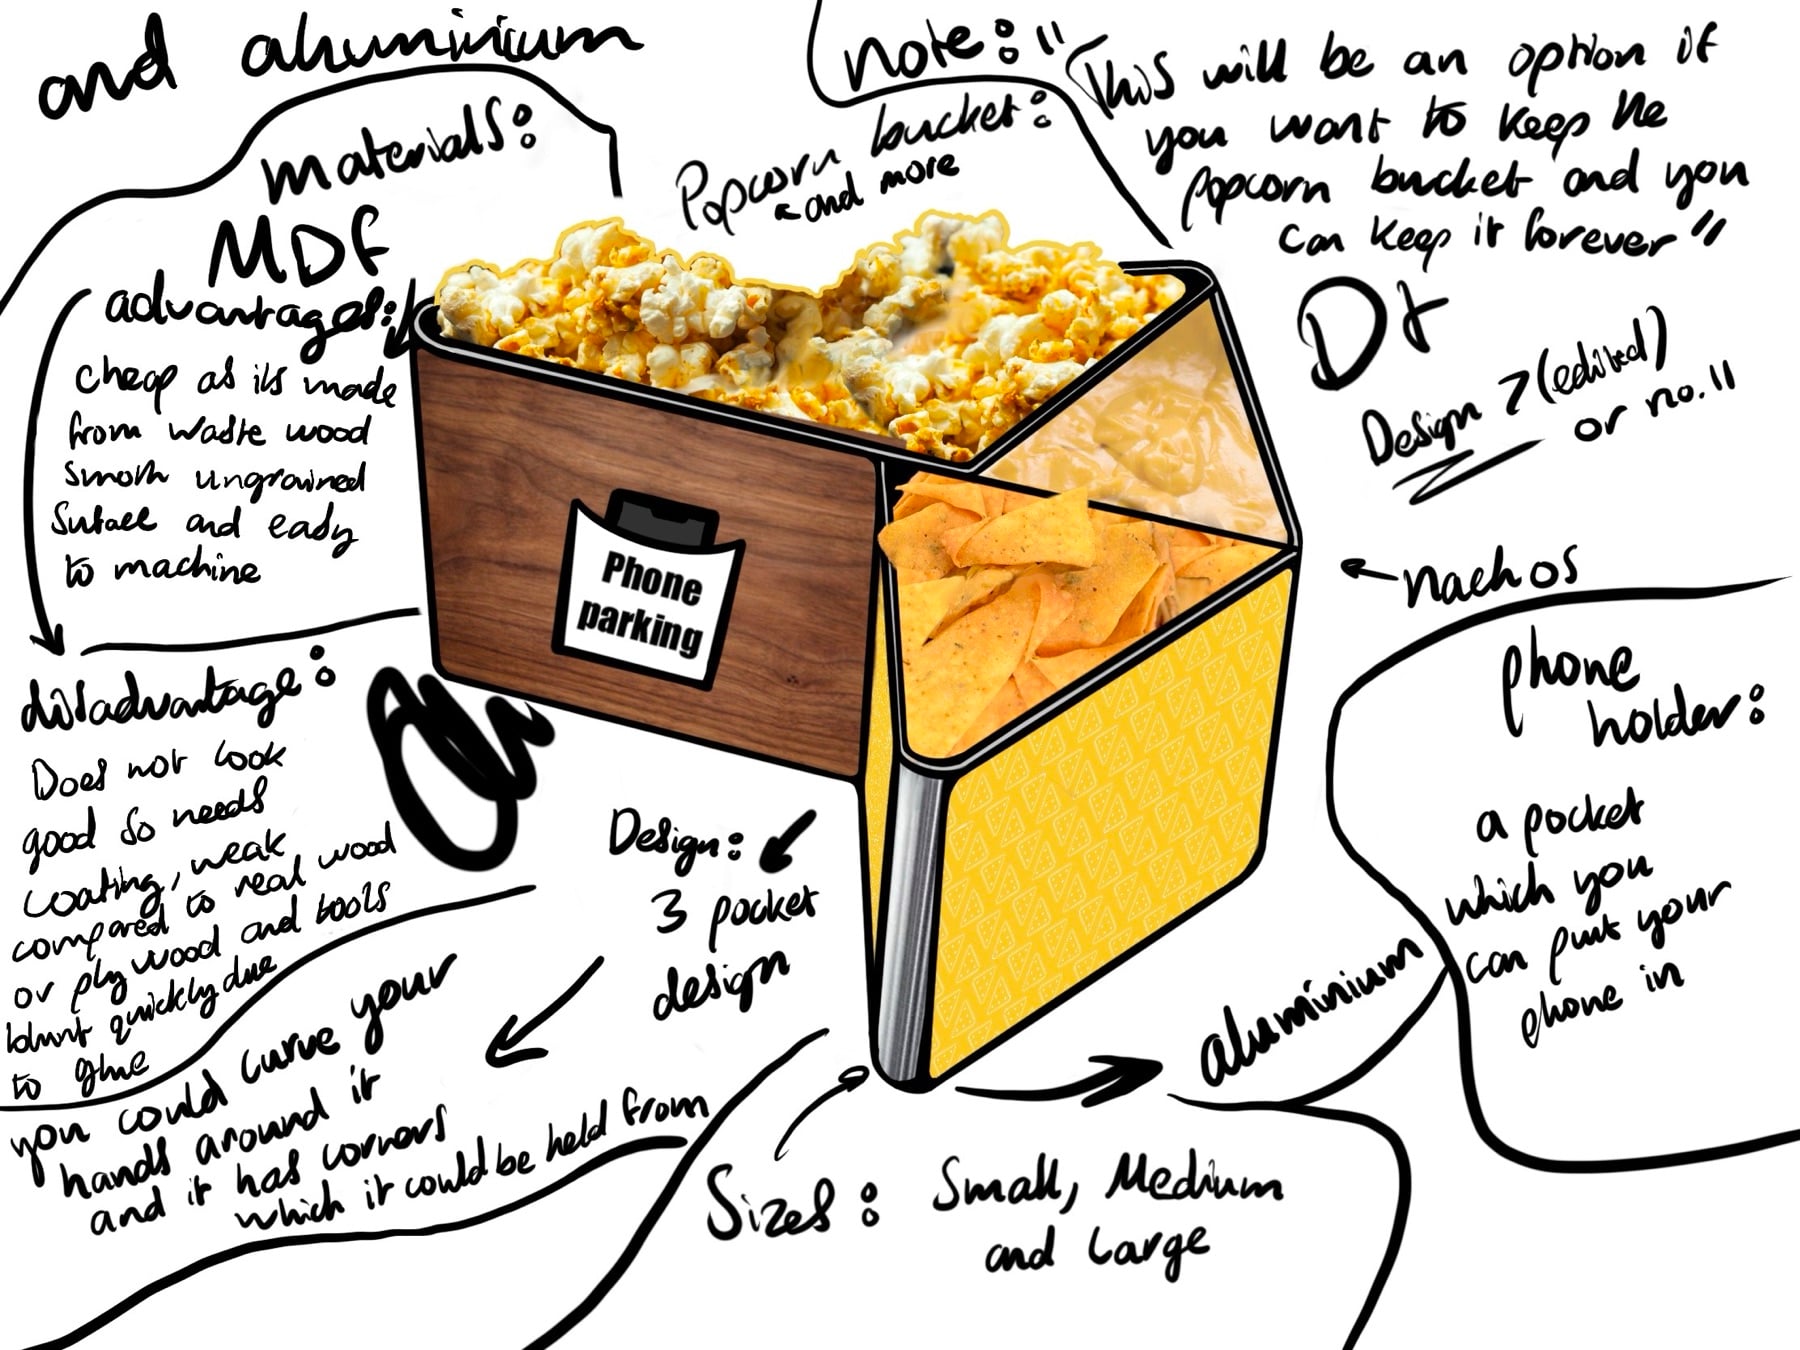 and aluminium
materials:
MDF
advantages:
cheap as its made
from waste wood
smoth ungrained
Suface and eady
to machine
disadvantage:
Does not look
good so needs
coating, weak
compared to real wood
or plywood and tools
blunt quickly due
to glue
note: "This will be an option if
you want to keep the
popcorn bucket and you
can keep it forever"
Popcorn bucket:
and more
Dt
Design 7 (edited)
or no.11
nachos
Phone
parking
phone
holder:
a pocket
which you
can put your
phone in
Design:
3 pocket
design
you could curve your
hands around it
and it has corners
which it could be held from
aluminium
Sizes: Small, Medium
and Large